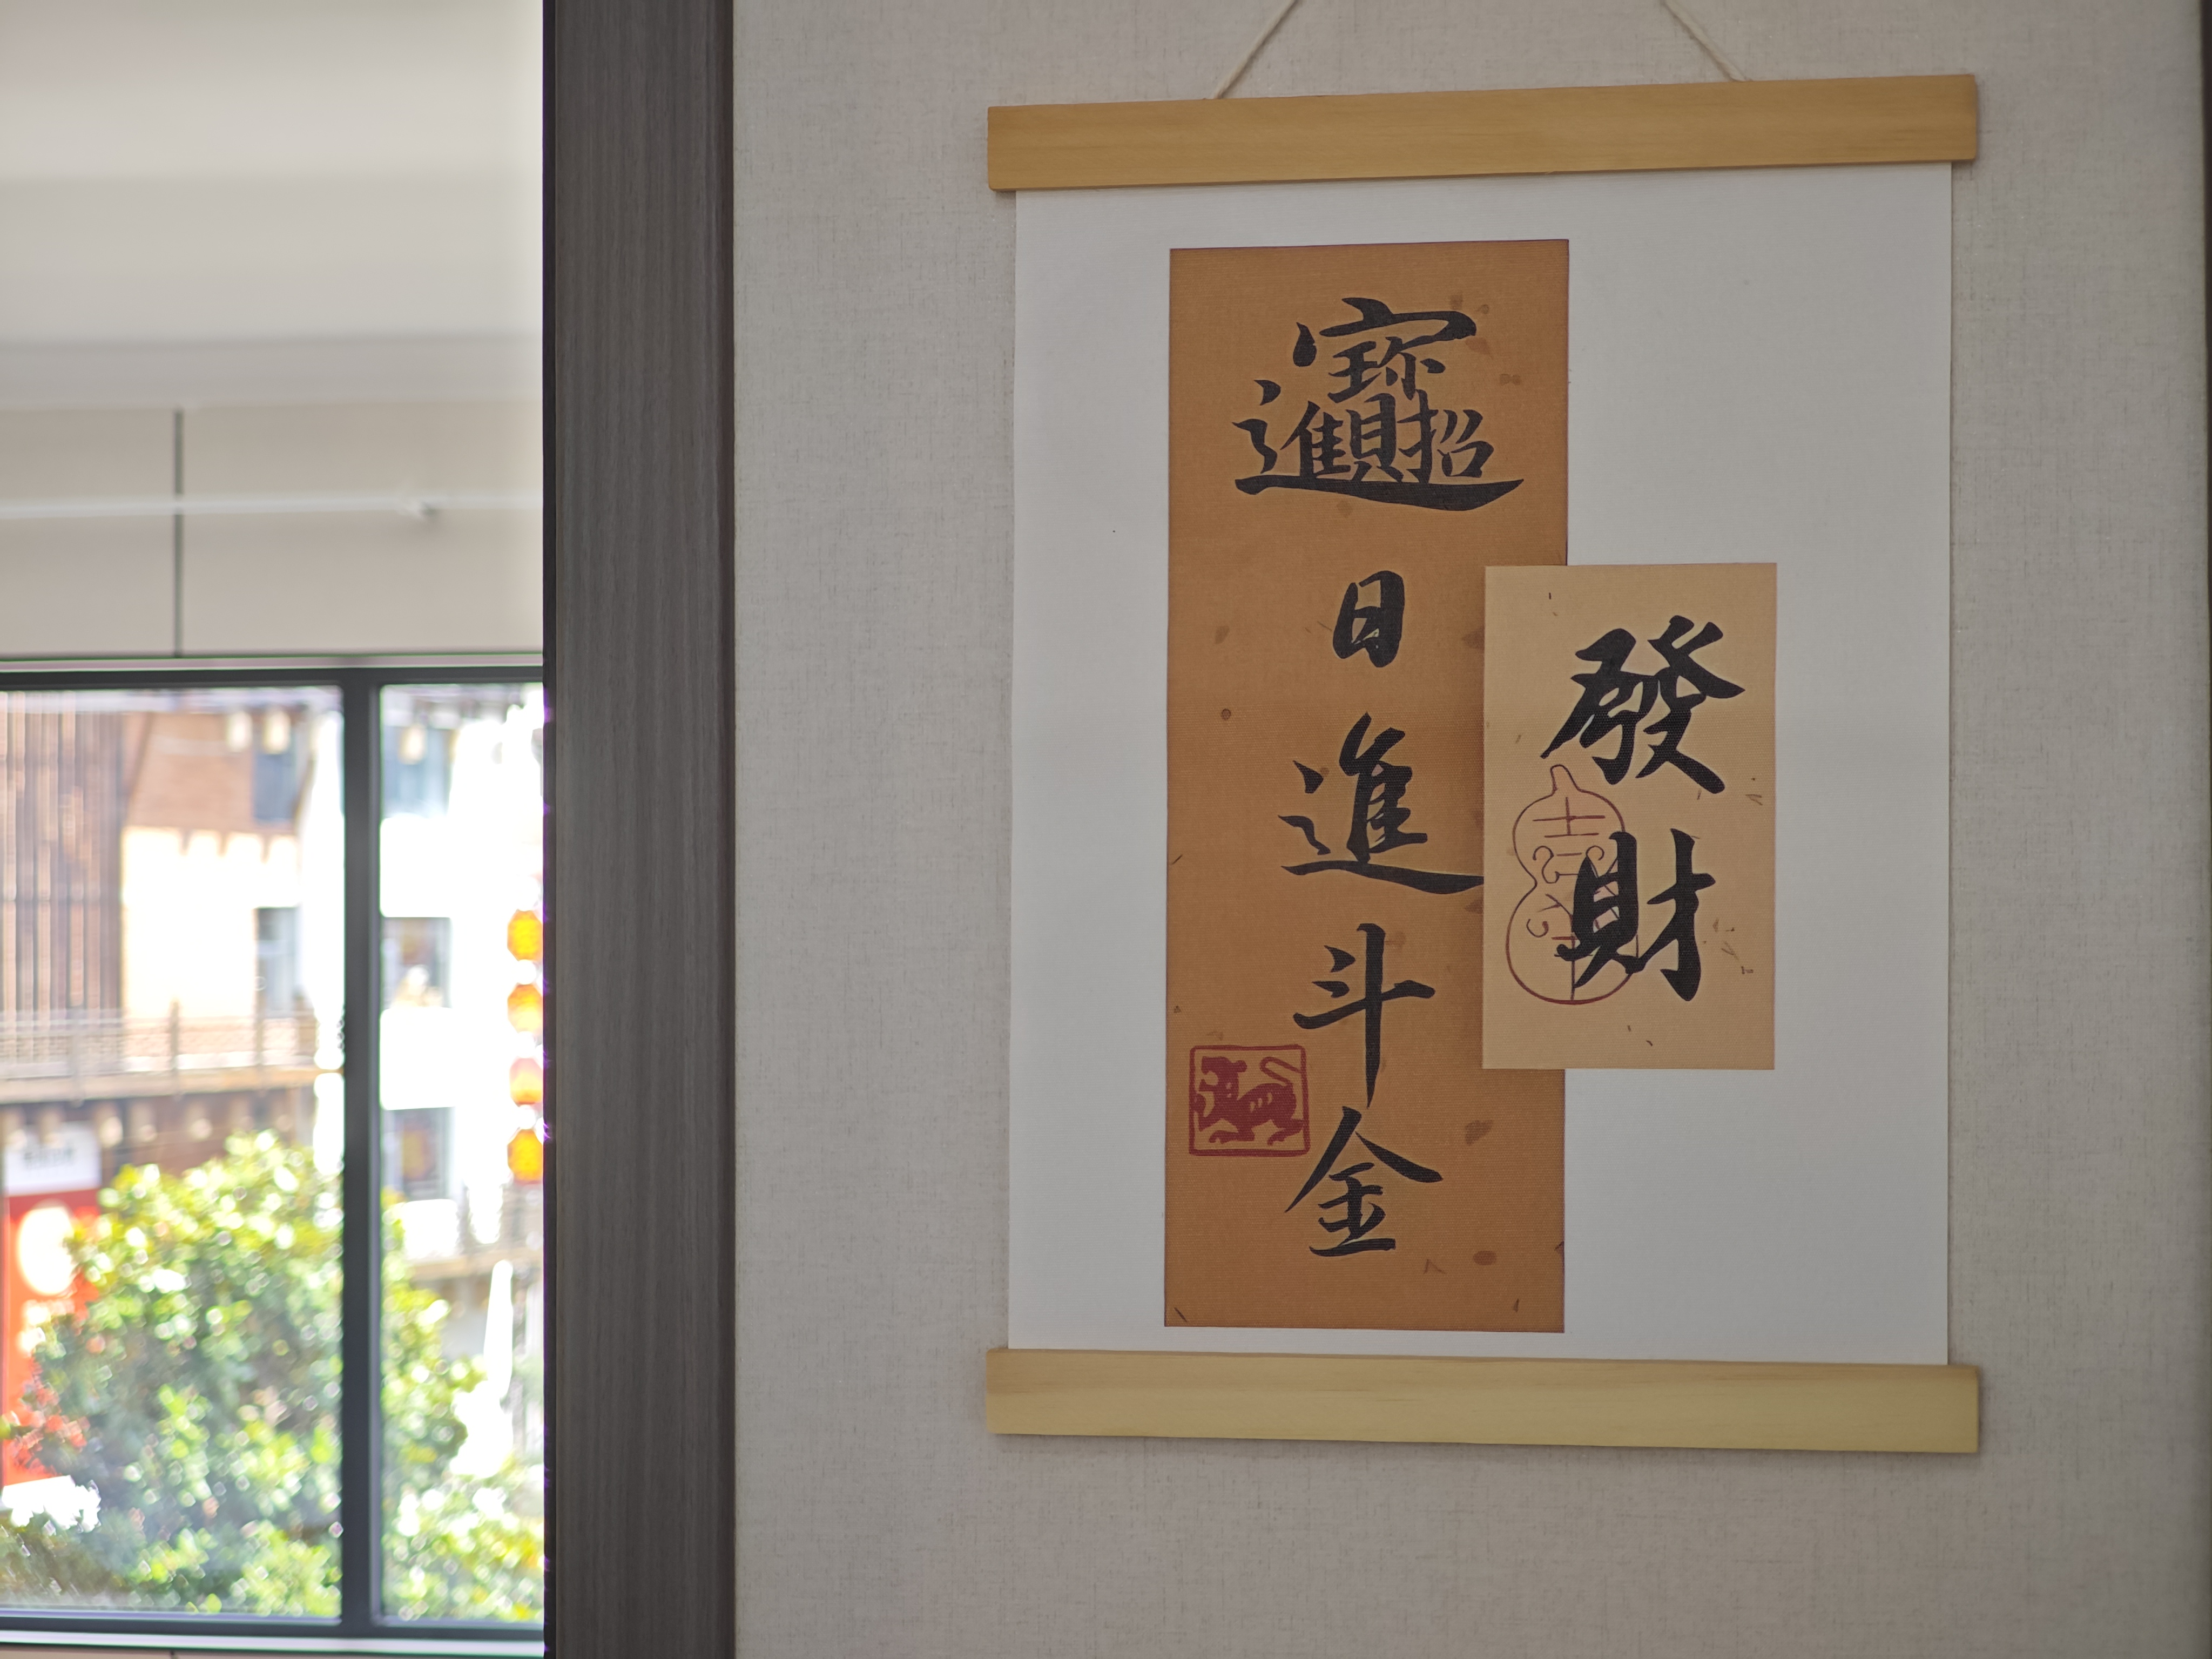 招財進寶
日進斗金
發財